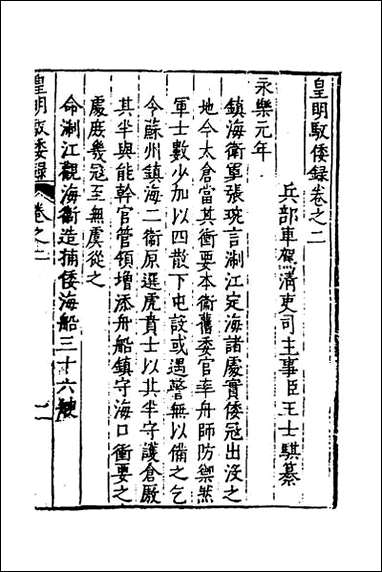 皇明馭倭錄卷之二
兵部車駕清吏司主事臣王士騏纂
永樂元年
鎮海衛軍張琬言浙江定海諸處實倭冦出没之
地今太倉當其衝要本衛舊委官率舟師防禦然
軍士數少加以四散下屯設或遇警無以備之乞
令蘇州鎮海二衛原選虎賁士以其半守護倉厫
其半與能幹官管領增添舟船鎮守海口衝要之
處庶幾冦至無虞從之
命浙江觀海衛造捕倭海船三十六艘
皇明馭倭錄 卷之二 一